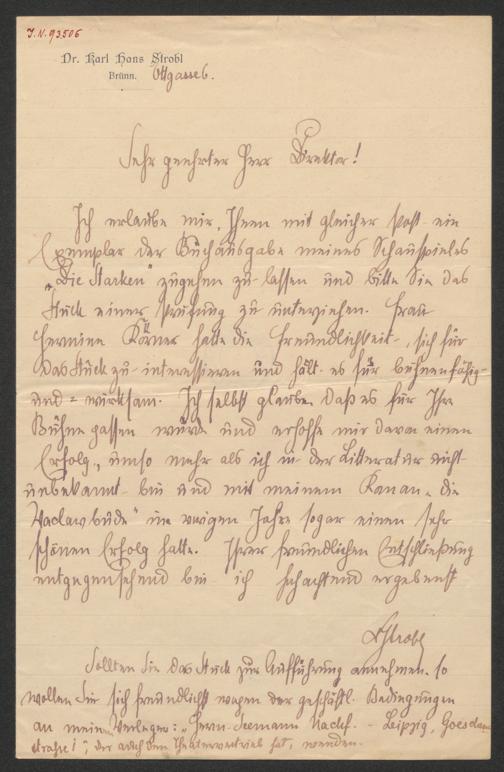 J.N. 93506
Dr. Karl Hans Strobl
Brünn. Ottgasse 6.
Sehr geehrter Herr Direktor!
Ich erlaube mir, Ihnen mit gleicher Post ein
Exemplar der Buchausgabe meines Schauspieles
„Die Starken“ zugehen zu lassen und bitte Sie das
Stück einer Prüfung zu unterziehen. Frau
Hermine Körner hatte die Freundlichkeit, sich für
das Stück zu interessieren und hält es für bühnenfähig
und = wirksam. Ich selbst glaube, daß es für Ihre
Bühne passen würde und erhoffe mir davon einen
Erfolg, umso mehr als ich in der Litteratur nicht
unbekannt bin und mit meinem Roman „die
Vaclavbude“ im vorigen Jahre sogar einen sehr
schönen Erfolg hatte. Ihrer freundlichen Entschließung
entgegensehend bin ich hochachtend ergebenst
KHStrobl
Sollten Sie das Stück zur Aufführung annehmen, so
wollen Sie sich freundlichst wegen der geschäftl. Bedingungen
an meinen Verleger: „Herm. Seemann Nachf. - Leipzig, Goeschen
straße 1“, der auch den Theatervertrieb hat, wenden.